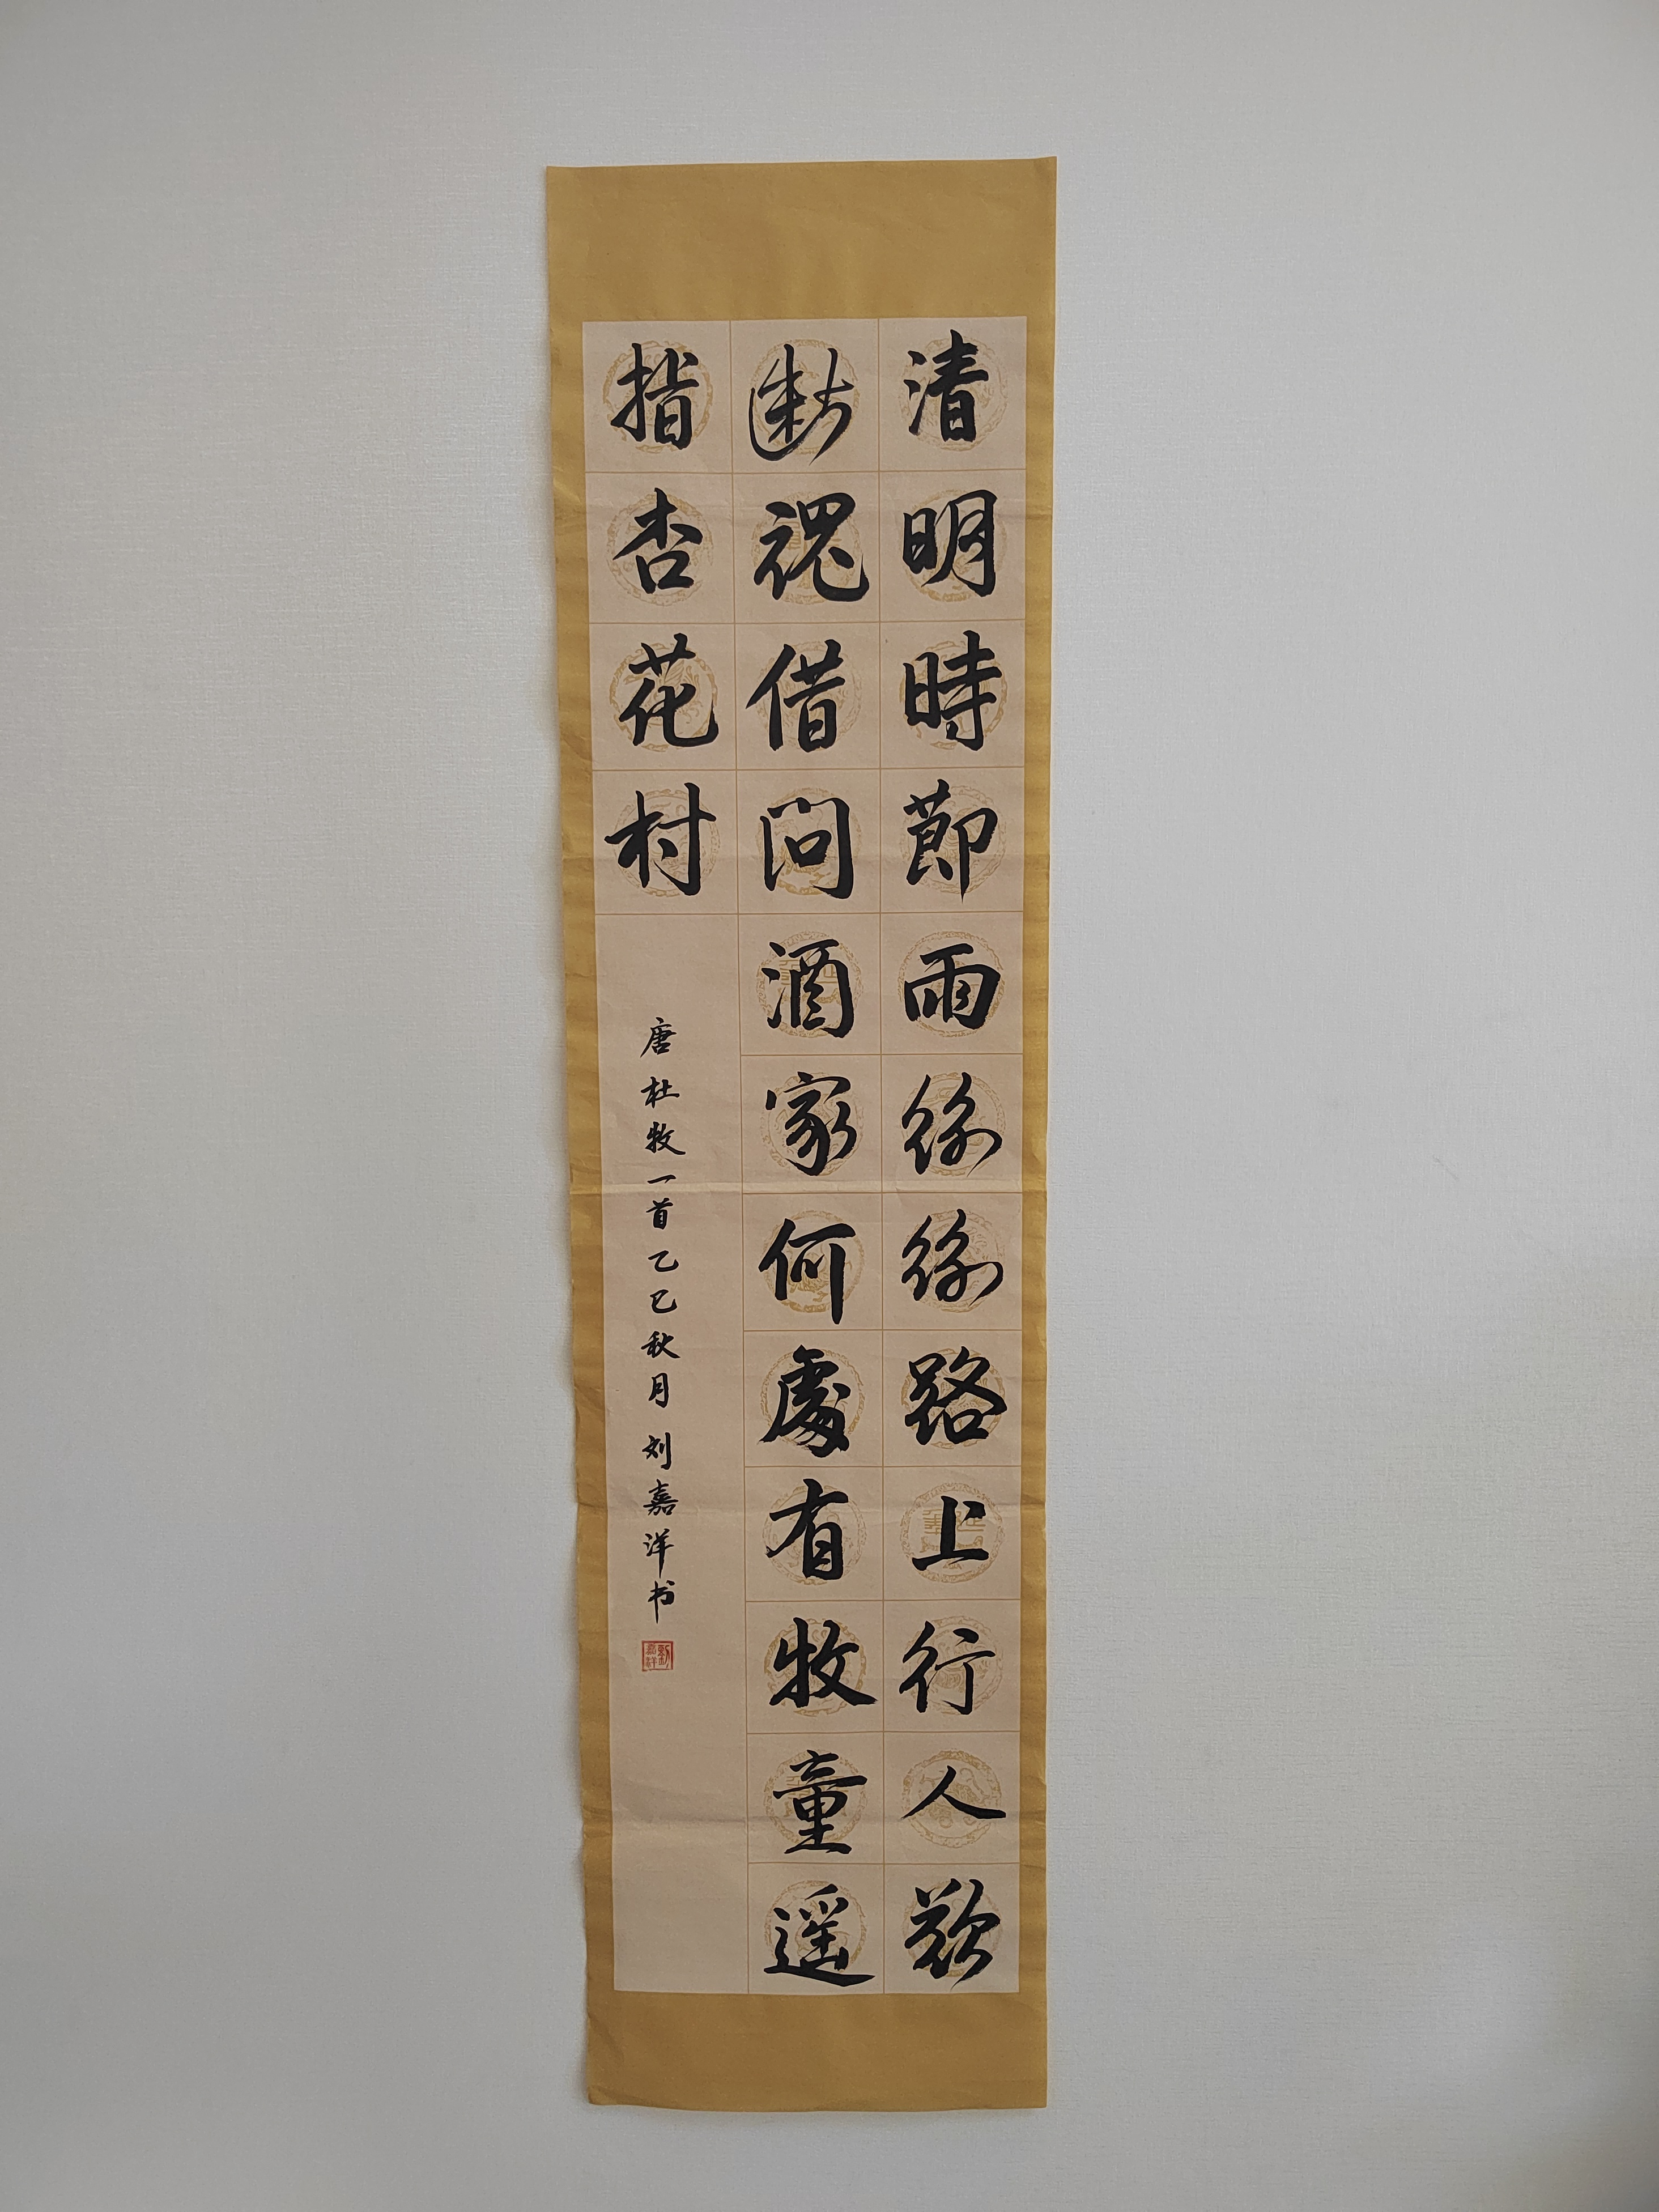 清明時節雨紛紛路上行人欲
斷魂借問酒家何處有牧童遥
指杏花村
唐杜牧一首乙巳秋月刘嘉洋书
劉嘉洋